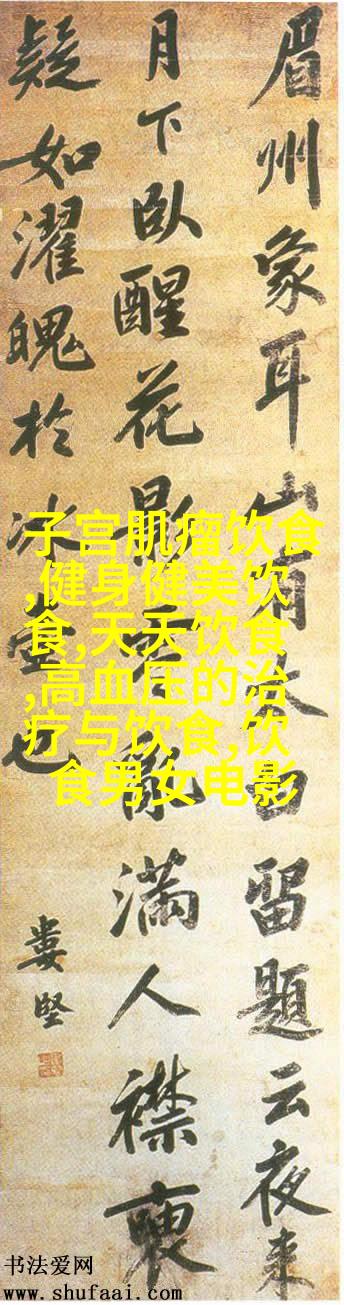 眉州象耳山有太白留題云夜来
月下臥醒花影零亂滿人襟
疑如濯魄於冰壺也
婁堅
子宫肌瘤饮食
,健身健美饮
食,天天饮食
,高血压的治
疗与饮食,饮
食男女电影
书法爱网
www.shufaai.com